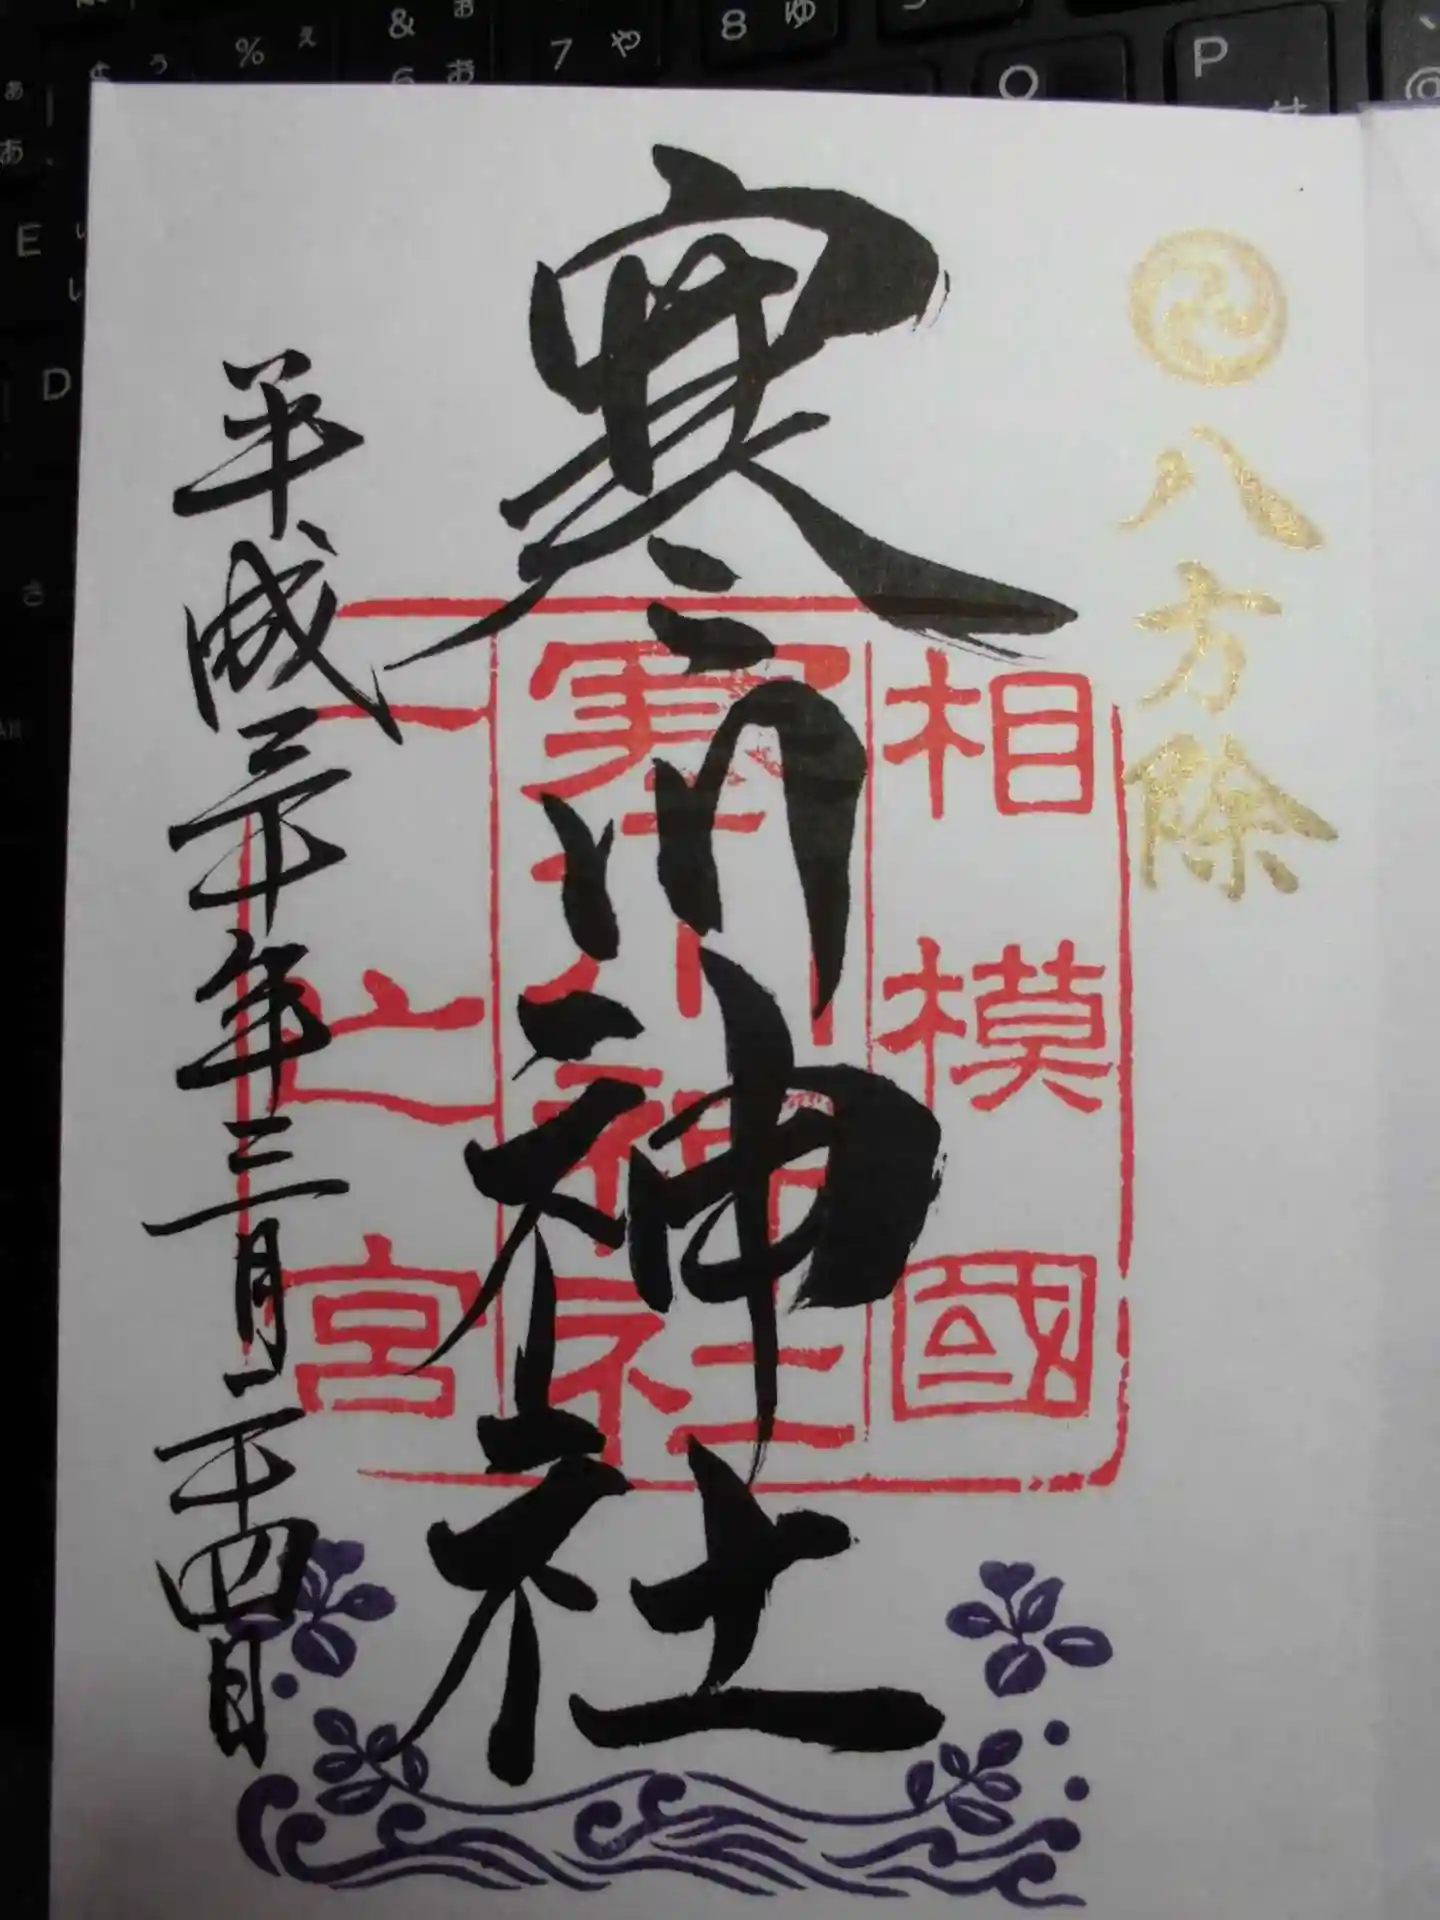 八方除
相模國
一之宮
寒川神社
寒川神社
平成三十年三月二十四日
% ぇ
& ぉ
6 お
7 や
8 ゅ
O
P せ
@
E い
D